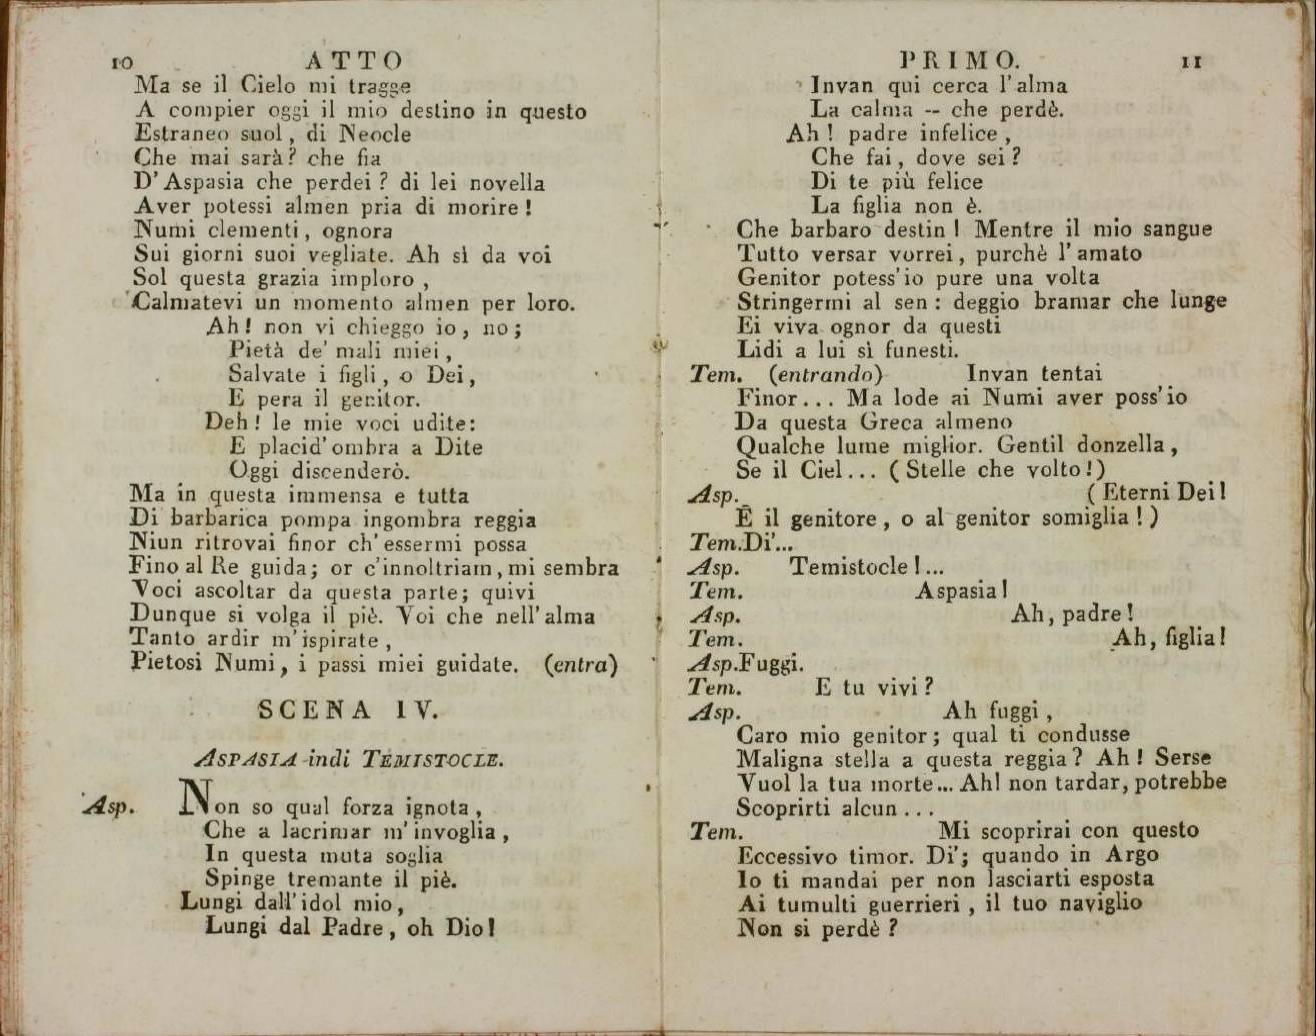 10 ATTO
Ma se il Cielo mi tragge
A compier oggi il mio destino in questo
Estraneo suol, di Neocle
Che mai sarà? che fia
D'Aspasia che perdei? di lei novella
Aver potessi almen pria di morire!
Numi clementi, ognora
Sui giorni suoi vegliate. Ah sì da voi
Sol questa grazia imploro,
Calmatevi un momento almen per loro.
Ah! non vi chieggo io, no;
Pietà de' mali miei,
Salvate i figli, o Dei,
E pera il genitor.
Deh! le mie voci udite:
E placid'ombra a Dite
Oggi discenderò.
Ma in questa immensa e tutta
Di barbarica pompa ingombra reggia
Niun ritrovai finor ch'essermi possa
Fino al Re guida; or c'innoltriam, mi sembra
Voci ascoltar da questa parte; quivi
Dunque si volga il piè. Voi che nell'alma
Tanto ardir m'ispirate,
Pietosi Numi, i passi miei guidate. (entra)
SCENA IV.
ASPASIA indi TEMISTOCLE.
Asp. Non so qual forza ignota,
Che a lacrimar m'invoglia,
In questa muta soglia
Spinge tremante il piè.
Lungi dall'idol mio,
Lungi dal Padre, oh Dio!
PRIMO. 11
Invan qui cerca l'alma
La calma -- che perdè.
Ah! padre infelice,
Che fai, dove sei?
Di te più felice
La figlia non è.
Che barbaro destin! Mentre il mio sangue
Tutto versar vorrei, purchè l'amato
Genitor potess'io pure una volta
Stringermi al sen: deggio bramar che lunge
Ei viva ognor da questi
Lidi a lui sì funesti.
Tem. (entrando) Invan tentai
Finor... Ma lode ai Numi aver poss'io
Da questa Greca almeno
Qualche lume miglior. Gentil donzella,
Se il Ciel... (Stelle che volto!)
Asp. (Eterni Dei!
È il genitore, o al genitor somiglia!)
Tem. Di'...
Asp. Temistocle!...
Tem. Aspasia!
Asp. Ah, padre!
Tem. Ah, figlia!
Asp. Fuggi.
Tem. E tu vivi?
Asp. Ah fuggi,
Caro mio genitor; qual ti condusse
Maligna stella a questa reggia? Ah! Serse
Vuol la tua morte... Ah! non tardar, potrebbe
Scoprirti alcun...
Tem. Mi scoprirai con questo
Eccessivo timor. Di'; quando in Argo
Io ti mandai per non lasciarti esposta
Ai tumulti guerrieri, il tuo naviglio
Non si perdè?